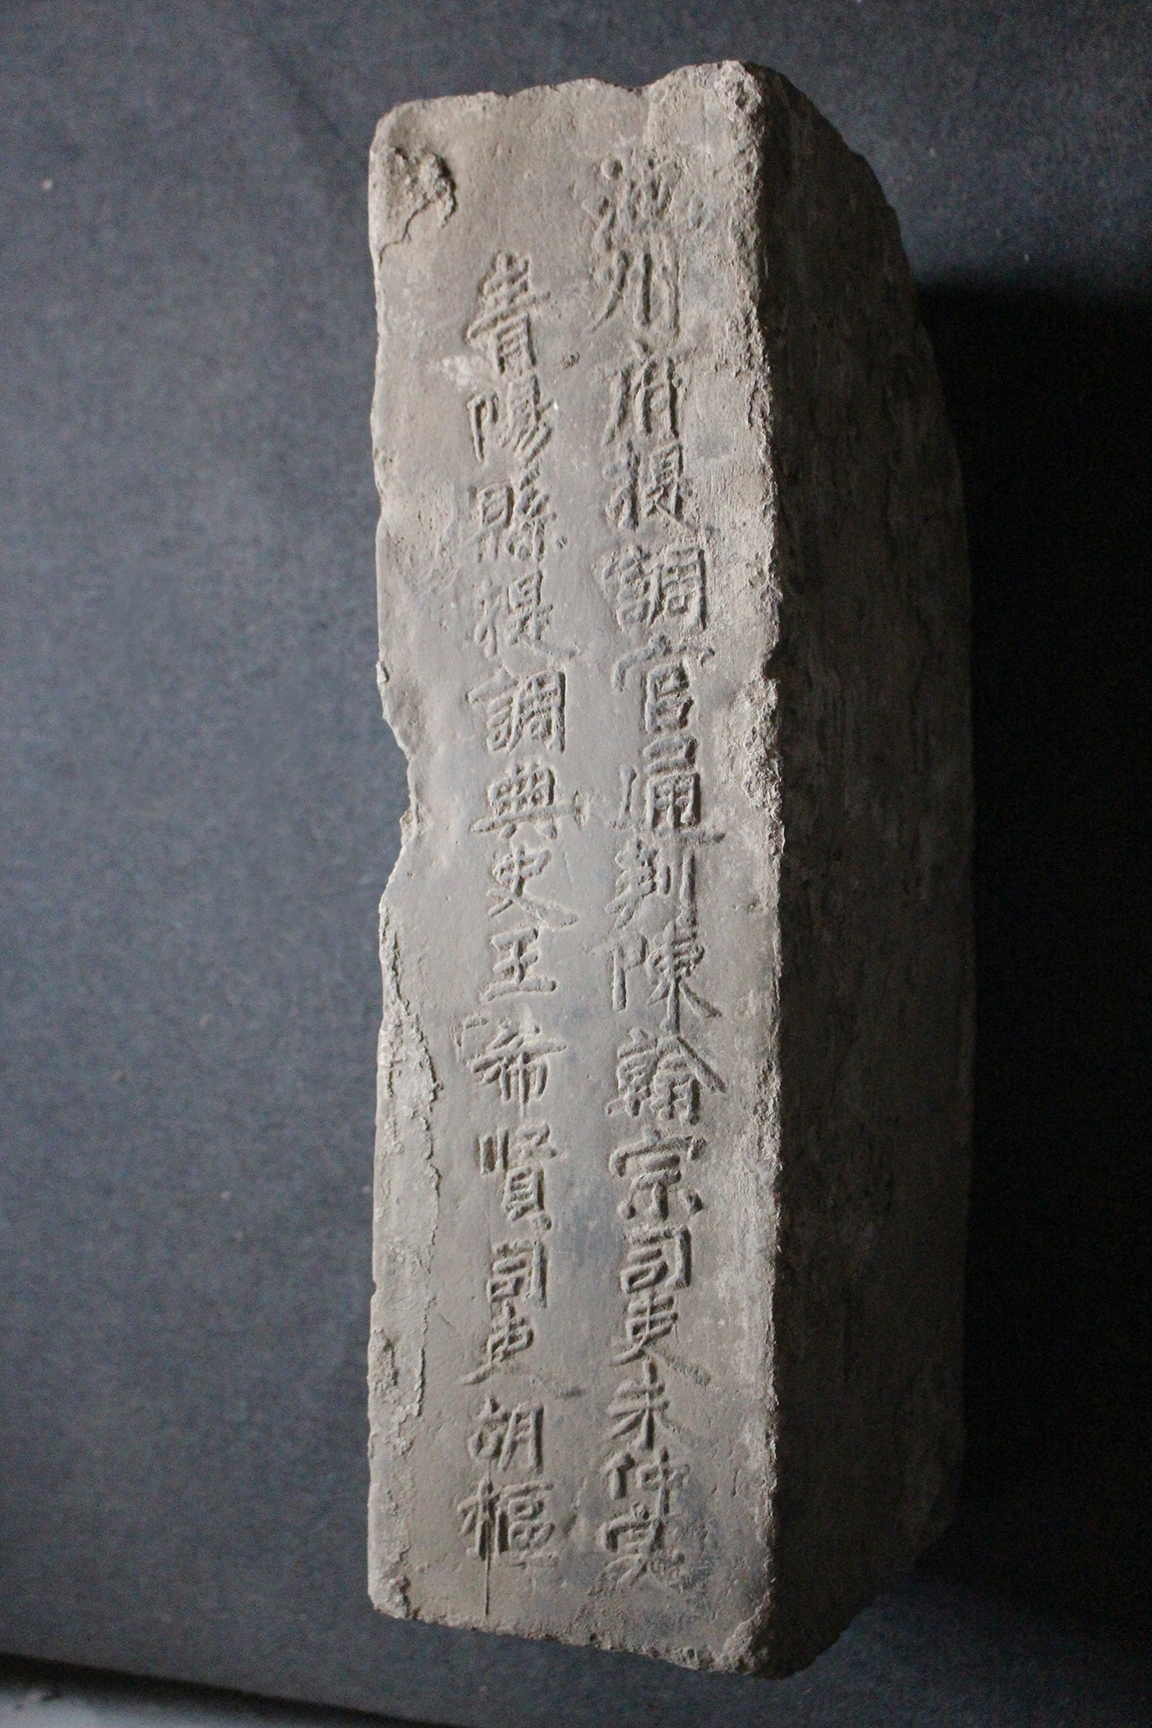 池州府提調官通判陳翰宗司吏朱仲実
青陽縣提調典史王希賢司吏胡樞